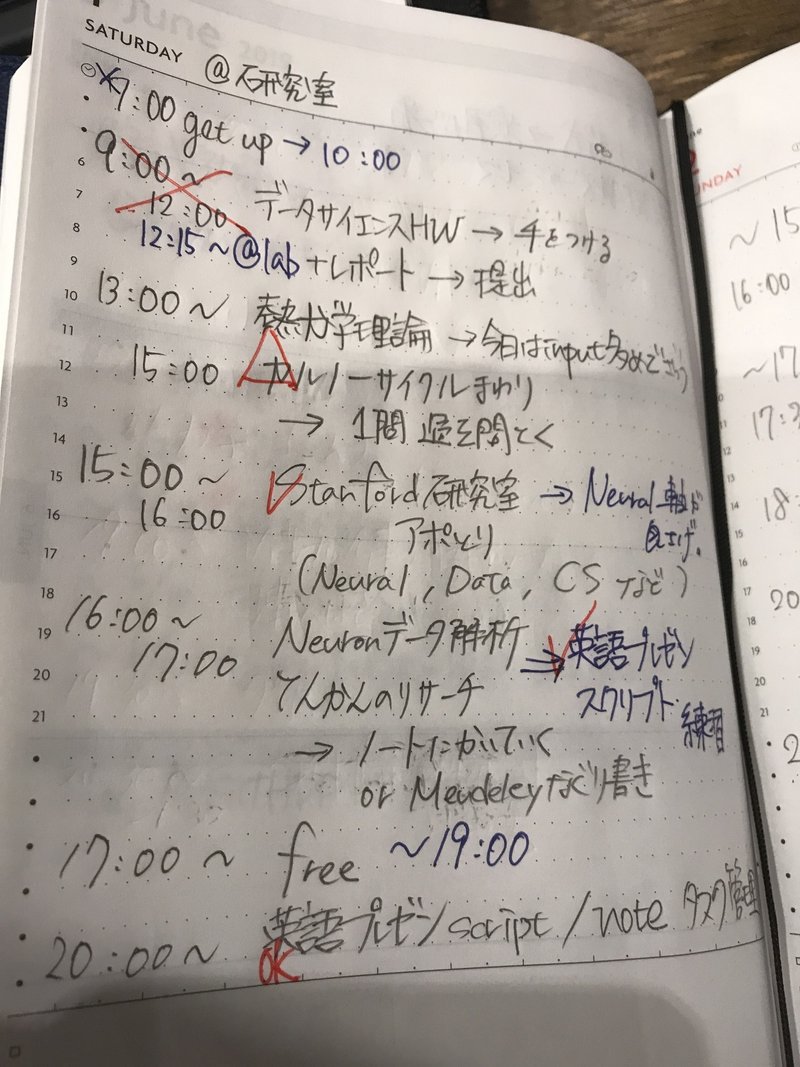 June
SATURDAY @研究室
7:00 get up → 10:00
9:00 ~
12:00 データサイエンスHW → 手をつける
12:15 ~ @lab +レポート → 提出
13:00 ~ 熱力学理論 → 今日はinput多めで
15:00 カルノーサイクルまわり
→ 1問 過去問とく
15:00 ~ Stanford研究室 → Neural 軸が
16:00 アポとり 良さげ.
(Neural, Data, CS など)
16:00 ~ Neuronデータ解析 ⇒ 英語プレゼン
17:00 てんかんのリサーチ スクリプト 練習
→ ノートにかいていく
or Mendeleyなぐり書き
17:00 ~ free ~19:00
20:00 ~ 英語プレゼンscript / note タスク管理
OK
6
7
8
9
10
11
12
13
14
15
16
17
18
19
20
21
UNDAY
~ 15
16:00
~17
18:
20